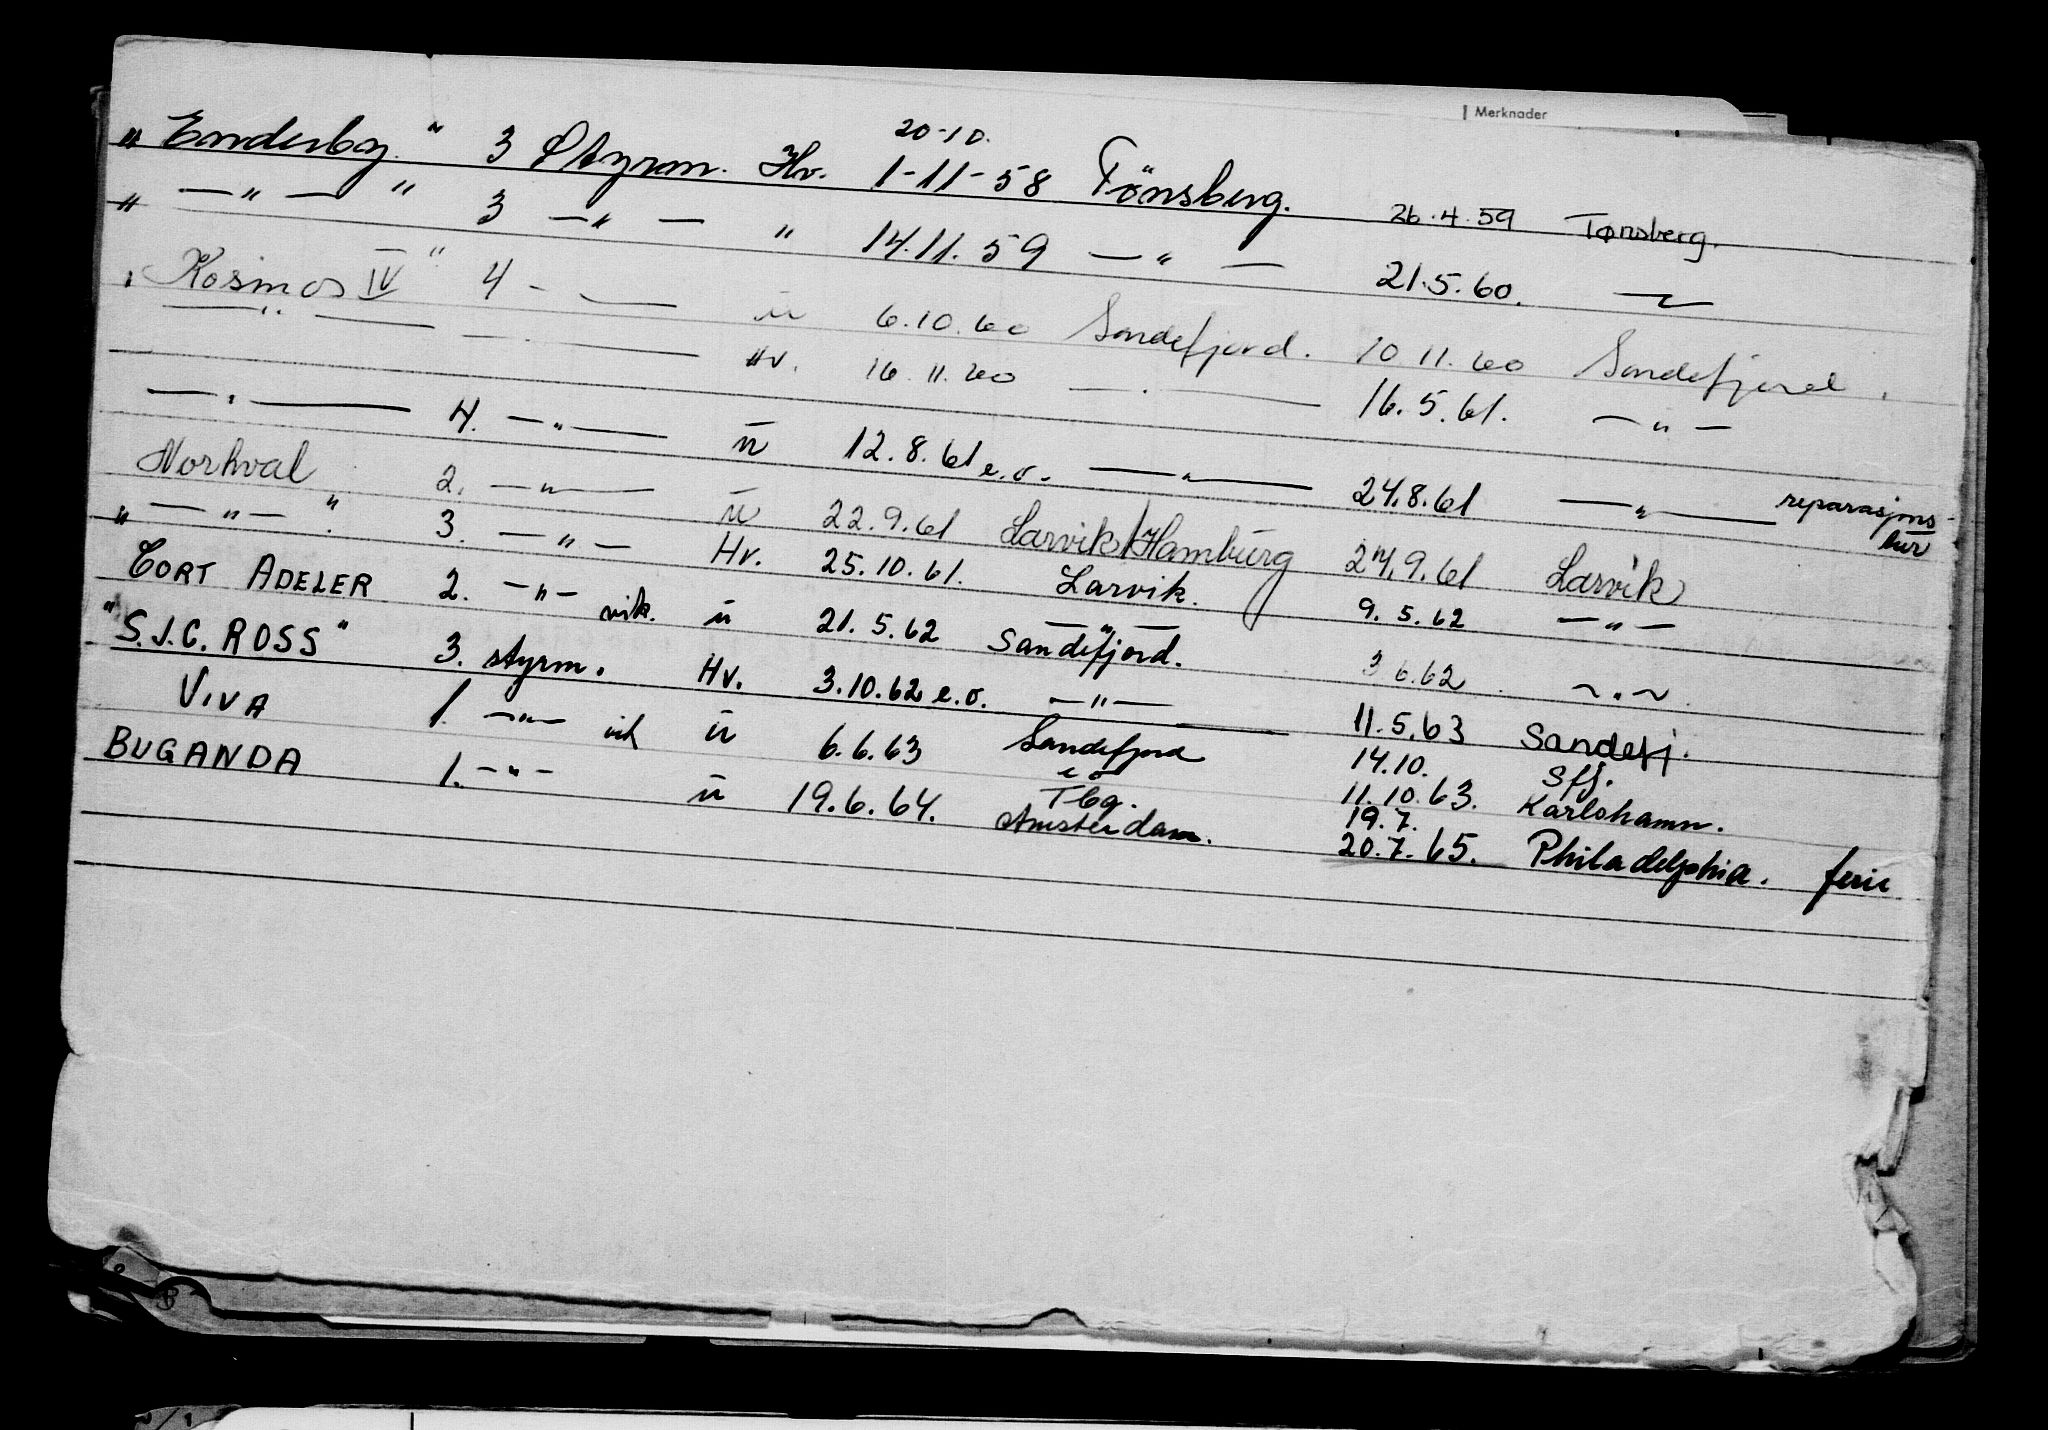 Merknader
20-10.
"Enderby." 3 Styrm. Hv. 1-11-58 Tønsberg. 26.4.59 Tønsberg.
" — " — " 3 — " — " 14.11.59 — " — 21.5.60. —
"Kosmos IV" 4 - — u 6.10.60 Sandefjord. 10 11.60 Sandefjord.
— " — — Hv. 16.11.60 — " — 16.5.61. — " —
— " — 4. — " — u 12.8.61 e.o. — " — 24.8.61 — " — reparasjons-
tur
Norhval 2. — " — u 22.9.61 Larvik/Hamburg 27.9.61 Larvik
" — " — " 3. — " — Hv. 25.10.61. Larvik. 9.5.62 — " —
CORT ADELER 2. — " — vik. u 21.5.62 — " — Sandefjord. 3 6.62 — " —
"S.J.C. ROSS" 3. styrm. Hv. 3.10.62 e.o. — " — 11.5.63 Sandefj.
VIVA 1. — " — vik u 6.6.63 Sandefjord 14.10. Sfj.
e o Tbg. 11.10.63. Karlshamn.
BUGANDA 1. — " — u 19.6.64. Amsterdam. 19.7.
20.7.65. Philadelphia. ferie